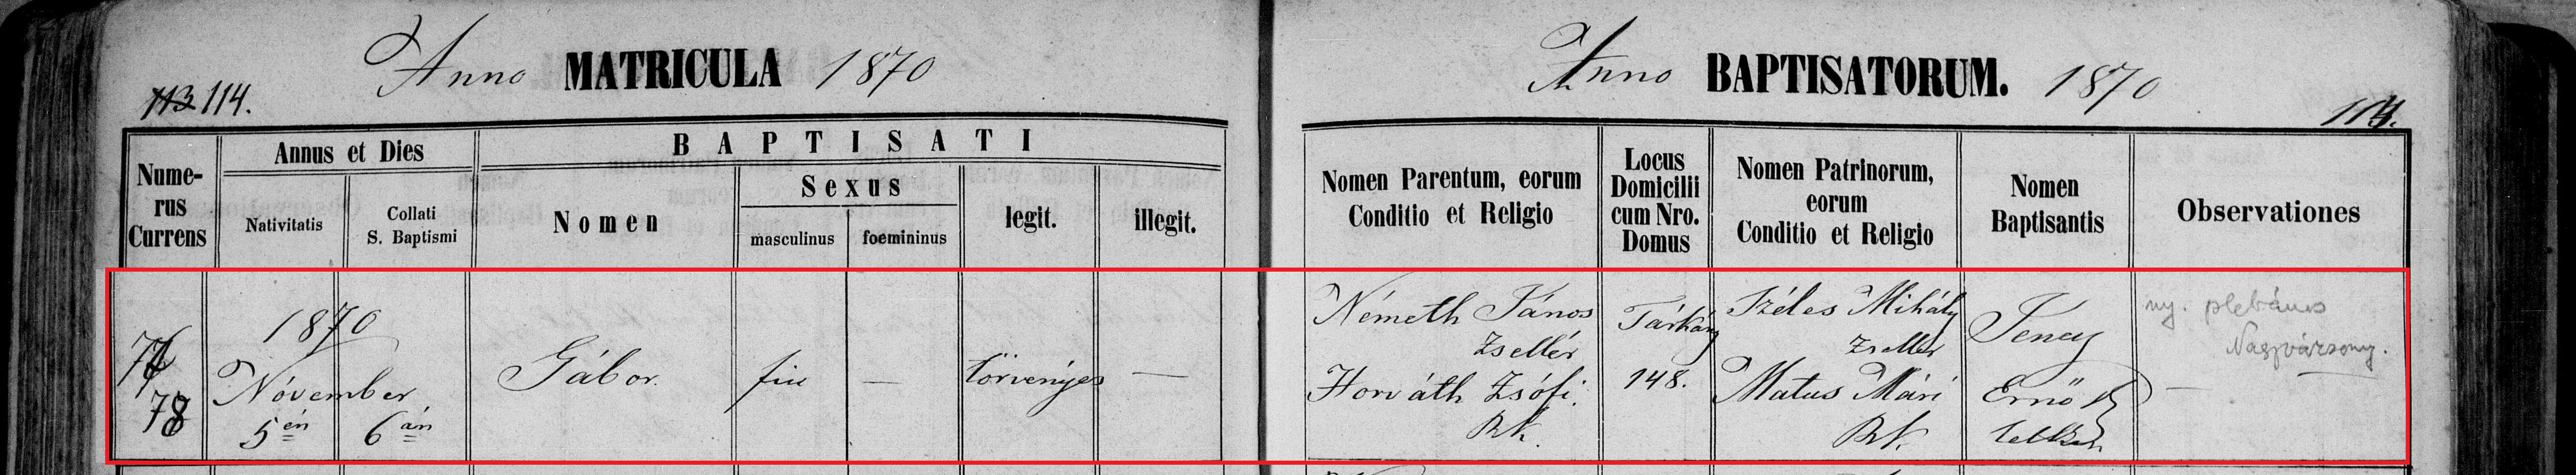 Anno MATRICULA 1870
113 114.
Anno BAPTISATORUM. 1870
114.
Numerus Currens
Annus et Dies
Nativitatis
Collati S. Baptismi
BAPTISATI
Nomen
Sexus
masculinus
foemininus
legit.
illegit.
Nomen Parentum, eorum
Conditio et Religio
Locus
Domicilii
cum Nro.
Domus
Nomen Patrinorum,
eorum
Conditio et Religio
Nomen
Baptisantis
Observationes
78
1870
Nóvember
5én
6án
Gábor.
fiu
—
törvényes
—
Németh János
Zsellér
Horváth Zsófi.
Rk.
Tárkány
148.
Széles Mihály
Zsellér
Matus Mári
Rk.
Jeney
Ernő
ny. plebános
Nagyvázsony.
—